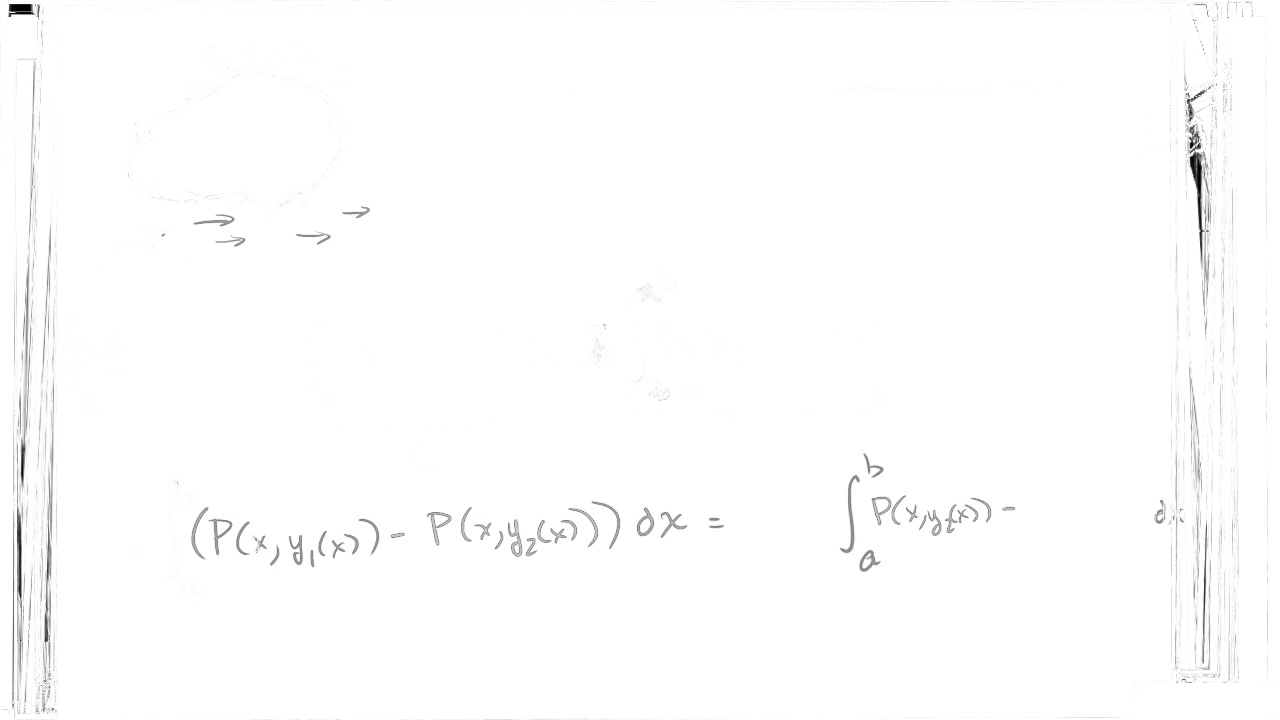 (P(x, y₁(x)) - P(x, y₂(x))) dx = ∫ₐᵇ P(x, y₂(x)) - dx